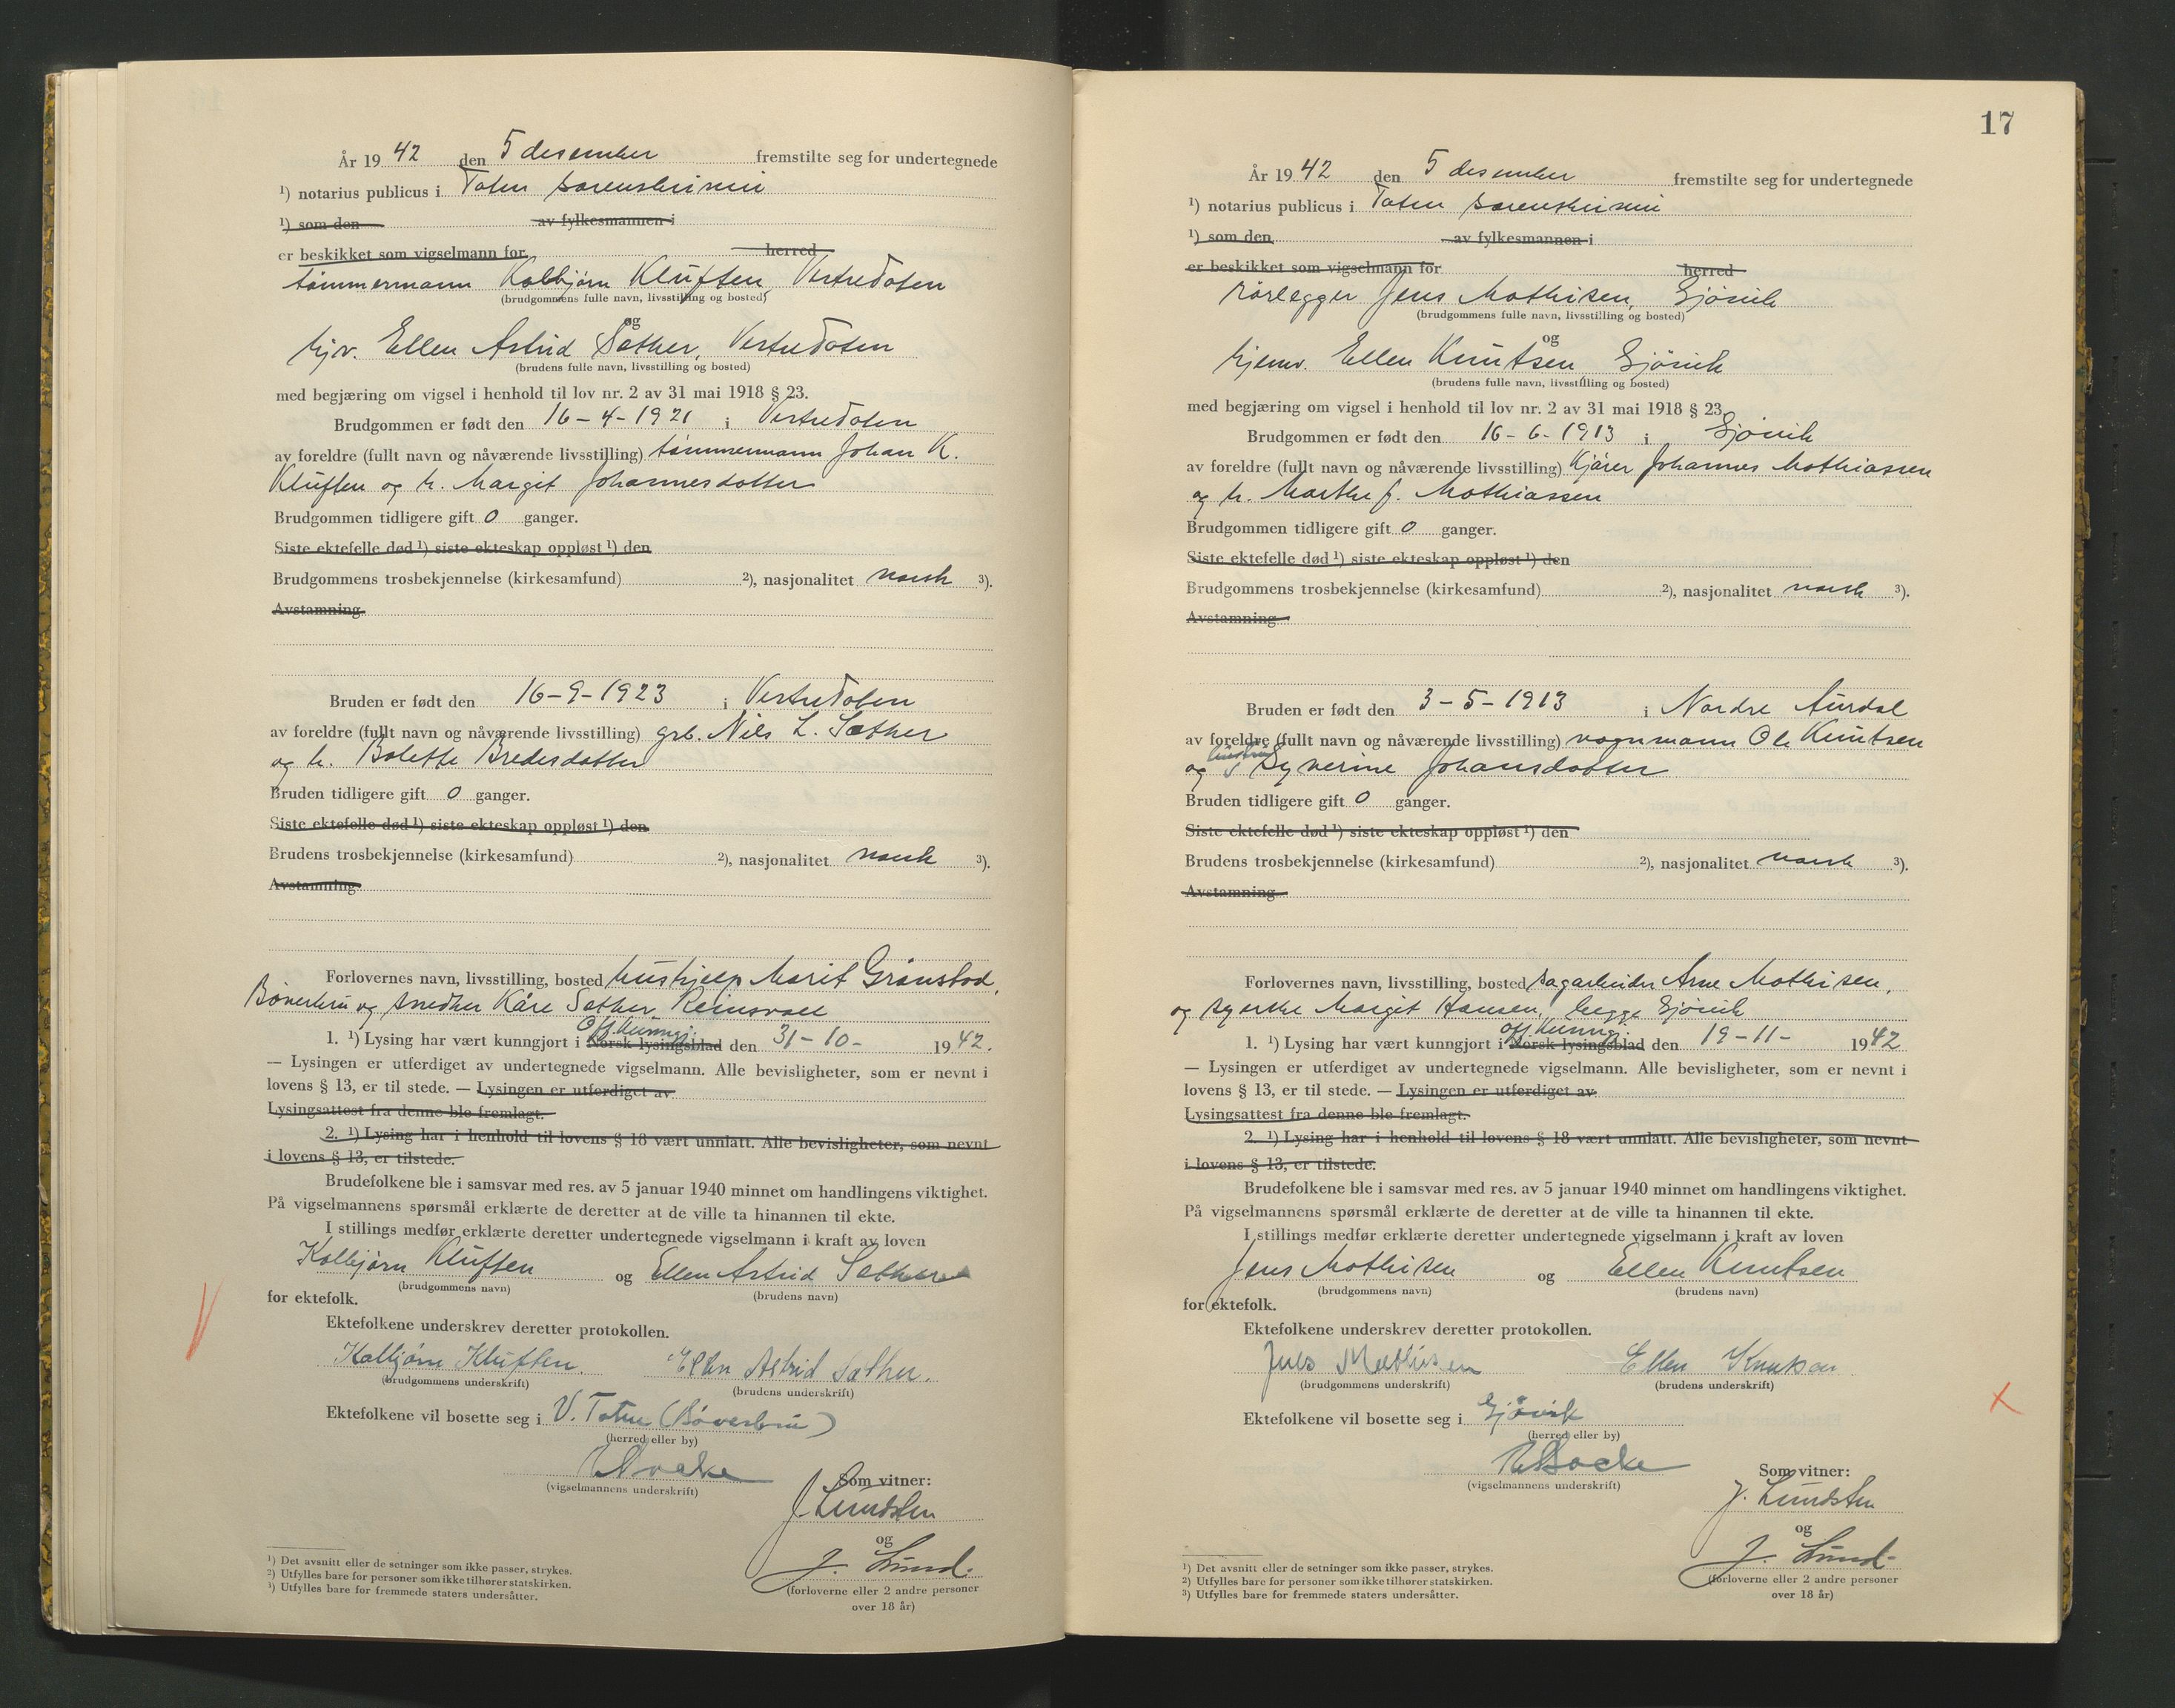 År 1942 den 5 desember fremstilte seg for undertegnede
¹) notarius publicus i Toten sorenskriveri
¹) som den av fylkesmannen i
er beskikket som vigselmann for herred
tømmermann Kolbjørn Kluften, VestreToten
(brudgommens fulle navn, livsstilling og bosted)
og
hjv. Ellen Astrid Sæther, VestreToten
(brudens fulle navn, livsstilling og bosted)
med begjæring om vigsel i henhold til lov nr. 2 av 31 mai 1918 § 23.
Brudgommen er født den 16-4-1921 i VestreToten
av foreldre (fullt navn og nåværende livsstilling) tømmermann Johan K.
Kluften og h. Margit Johannesdotter
Brudgommen tidligere gift 0 ganger.
Siste ektefelle død ¹) siste ekteskap oppløst ¹) den
Brudgommens trosbekjennelse (kirkesamfund) ²), nasjonalitet norsk ³).
Avstamning
Bruden er født den 16-9-1923 i VestreToten
av foreldre (fullt navn og nåværende livsstilling) grb. Nils L. Sæther
og h. Bolette Bredesdotter
Bruden tidligere gift 0 ganger.
Siste ektefelle død ¹) siste ekteskap oppløst ¹) den
Brudens trosbekjennelse (kirkesamfund) ²), nasjonalitet norsk ³).
Avstamning
Forlovernes navn, livsstilling, bosted hushjelp Marit Grønstad,
Bøverbru og snedker Kåre Sæther, Reinsvoll
Off. kunngj.
1. ¹) Lysing har vært kunngjort i Norsk lysingsblad den 31-10- 1942.
— Lysingen er utferdiget av undertegnede vigselmann. Alle bevisligheter, som er nevnt i
lovens § 13, er til stede. — Lysingen er utferdiget av
Lysingsattest fra denne ble fremlagt.
2. ¹) Lysing har i henhold til lovens § 18 vært unnlatt. Alle bevisligheter, som nevnt
i lovens § 13, er tilstede.
Brudefolkene ble i samsvar med res. av 5 januar 1940 minnet om handlingens viktighet.
På vigselmannens spørsmål erklærte de deretter at de ville ta hinannen til ekte.
I stillings medfør erklærte deretter undertegnede vigselmann i kraft av loven
Kolbjørn Kluften og Ellen Astrid Sæther
(brudgommens navn) (brudens navn)
for ektefolk.
Ektefolkene underskrev deretter protokollen.
Kolbjørn Kluften. Ellen Astrid Sæther.
(brudgommens underskrift) (brudens underskrift)
Ektefolkene vil bosette seg i V. Toten (Bøverbru)
(herred eller by)
(vigselmannens underskrift)
Som vitner:
J. Lundsten
og
J. Lund.
(forloverne eller 2 andre personer
over 18 år)
¹) Det avsnitt eller de setninger som ikke passer, strykes.
²) Utfylles bare for personer som ikke tilhører statskirken.
³) Utfylles bare for fremmede staters undersåtter.
17
År 1942 den 5 desember fremstilte seg for undertegnede
¹) notarius publicus i Toten sorenskriveri
¹) som den av fylkesmannen i
er beskikket som vigselmann for herred
rørlegger Jens Mathisen, Gjøvik
(brudgommens fulle navn, livsstilling og bosted)
og
hjemv. Ellen Knutsen, Gjøvik
(brudens fulle navn, livsstilling og bosted)
med begjæring om vigsel i henhold til lov nr. 2 av 31 mai 1918 § 23.
Brudgommen er født den 16-6-1913 i Gjøvik
av foreldre (fullt navn og nåværende livsstilling) kjører Johannes Mathiassen
og h. Marthe f. Mathiassen
Brudgommen tidligere gift 0 ganger.
Siste ektefelle død ¹) siste ekteskap oppløst ¹) den
Brudgommens trosbekjennelse (kirkesamfund) ²), nasjonalitet norsk ³).
Avstamning
Bruden er født den 3-5-1913 i Nordre Aurdal
av foreldre (fullt navn og nåværende livsstilling) vognmann Ole Knutsen
hustru
og Syverine Johansdotter
Bruden tidligere gift 0 ganger.
Siste ektefelle død ¹) siste ekteskap oppløst ¹) den
Brudens trosbekjennelse (kirkesamfund) ²), nasjonalitet norsk ³).
Avstamning
Forlovernes navn, livsstilling, bosted sagarbeider Arne Mathisen,
og syerske Margit Hansen, begge Gjøvik
off. kunngj.
1. ¹) Lysing har vært kunngjort i Norsk lysingsblad den 19-11- 1942
— Lysingen er utferdiget av undertegnede vigselmann. Alle bevisligheter, som er nevnt i
lovens § 13, er til stede. — Lysingen er utferdiget av
Lysingsattest fra denne ble fremlagt.
2. ¹) Lysing har i henhold til lovens § 18 vært unnlatt. Alle bevisligheter, som nevnt
i lovens § 13, er tilstede.
Brudefolkene ble i samsvar med res. av 5 januar 1940 minnet om handlingens viktighet.
På vigselmannens spørsmål erklærte de deretter at de ville ta hinannen til ekte.
I stillings medfør erklærte deretter undertegnede vigselmann i kraft av loven
Jens Mathisen og Ellen Knutsen
(brudgommens navn) (brudens navn)
for ektefolk.
Ektefolkene underskrev deretter protokollen.
Jens Mathisen Ellen Knutsen
(brudgommens underskrift) (brudens underskrift)
Ektefolkene vil bosette seg i Gjøvik
(herred eller by)
(vigselmannens underskrift)
Som vitner:
J. Lundsten
og
J. Lund
(forloverne eller 2 andre personer
over 18 år)
¹) Det avsnitt eller de setninger som ikke passer, strykes.
²) Utfylles bare for personer som ikke tilhører statskirken.
³) Utfylles bare for fremmede staters undersåtter.